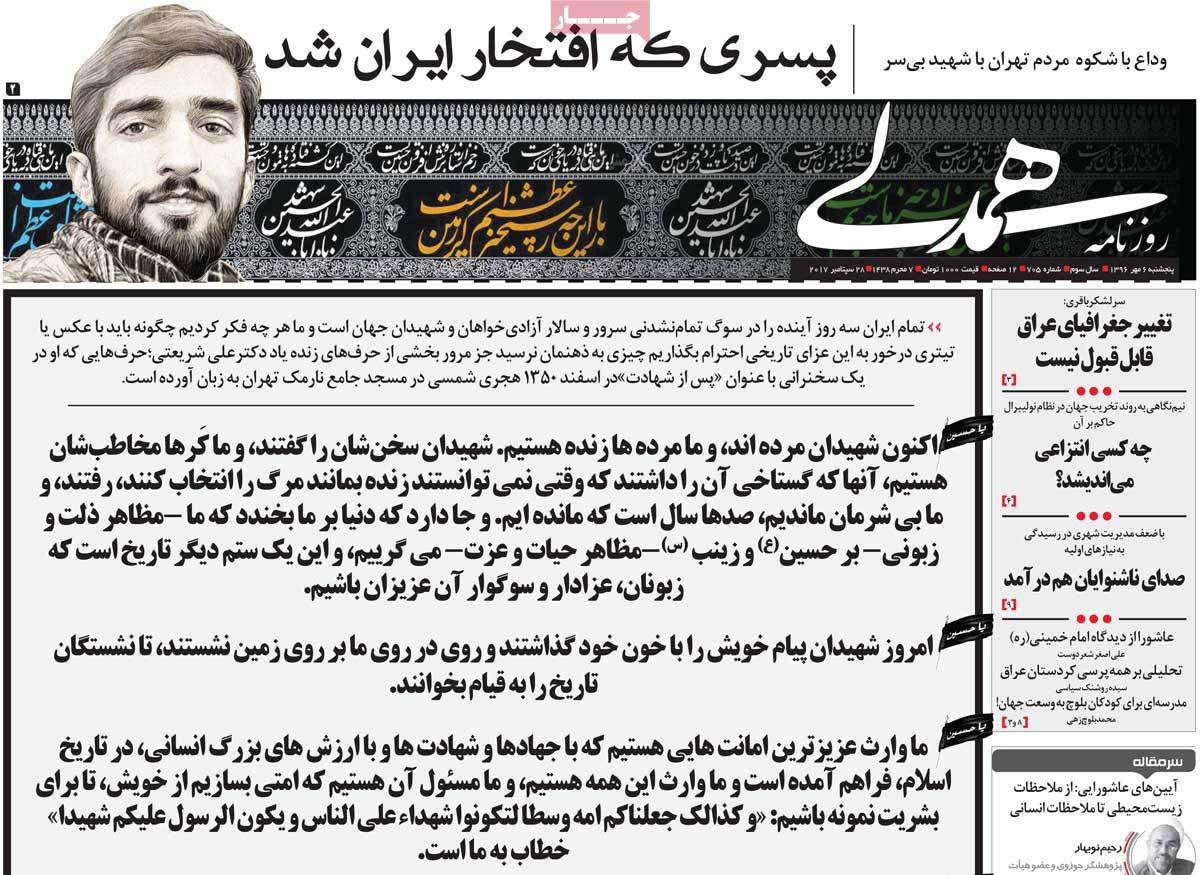 جــار
وداع با شکوه مردم تهران با شهید بی‌سر
پسری که افتخار ایران شد
۲
روزنامه
همدلی
پنجشنبه ۶ مهر ۱۳۹۶ ■ سال سوم ■ شماره ۷۰۵ ■ ۱۲ صفحه ■ قیمت ۱۰۰۰ تومان ■ ۷ محرم ۱۴۳۸ ■ ۲۸ سپتامبر ۲۰۱۷
سرلشکر باقری:
تغییر جغرافیای عراق
قابل قبول نیست
[۳]
نیم‌نگاهی به روند تخریب جهان در نظام نولیبرال
حاکم بر آن
چه کسی انتزاعی
می‌اندیشد؟
[۴]
با ضعف مدیریت شهری در رسیدگی
به نیازهای اولیه
صدای ناشنوایان هم در آمد
[۹]
عاشورا از دیدگاه امام خمینی(ره)
علی‌اصغر شعردوست
تحلیلی بر همه پرسی کردستان عراق
سیده روشنک سیاسی
مدرسه‌ای برای کودکان بلوچ به وسعت جهان!
محمد بلوچ‌زهی
[۸ و ۳]
سرمقاله
آیین‌های عاشورایی: از ملاحظات
زیست‌محیطی تا ملاحظات انسانی
رحیم نوبهار
پژوهشگر حوزوی و عضو هیأت
›› تمام ایران سه روز آینده را در سوگ تمام‌نشدنی سرور و سالار آزادی‌خواهان و شهیدان جهان است و ما هر چه فکر کردیم چگونه باید با عکس یا
تیتری درخور به این عزای تاریخی احترام بگذاریم چیزی به ذهنمان نرسید جز مرور بخشی از حرف‌های زنده یاد دکتر علی شریعتی؛ حرف‌هایی که او در
یک سخنرانی با عنوان «پس از شهادت» در اسفند ۱۳۵۰ هجری شمسی در مسجد جامع نارمک تهران به زبان آورده است.
یا حسین
اکنون شهیدان مرده اند، و ما مرده ها زنده هستیم. شهیدان سخن‌شان را گفتند، و ما کَرها مخاطب‌شان
هستیم، آنها که گستاخی آن را داشتند که وقتی نمی توانستند زنده بمانند مرگ را انتخاب کنند، رفتند، و
ما بی شرمان ماندیم، صدها سال است که مانده ایم. و جا دارد که دنیا بر ما بخندد که ما –مظاهر ذلت و
زبونی– بر حسین(ع) و زینب (س) –مظاهر حیات و عزت– می گرییم، و این یک ستم دیگر تاریخ است که
زبونان، عزادار و سوگوار آن عزیزان باشیم.
یا حسین
امروز شهیدان پیام خویش را با خون خود گذاشتند و روی در روی ما بر روی زمین نشستند، تا نشستگان
تاریخ را به قیام بخوانند.
یا حسین
ما وارث عزیزترین امانت هایی هستیم که با جهادها و شهادت ها و با ارزش های بزرگ انسانی، در تاریخ
اسلام، فراهم آمده است و ما وارث این همه هستیم، و ما مسئول آن هستیم که امتی بسازیم از خویش، تا برای
بشریت نمونه باشیم: «و کذالک جعلناکم امه وسطا لتکونوا شهداء علی الناس و یکون الرسول علیکم شهیدا»
خطاب به ما است.